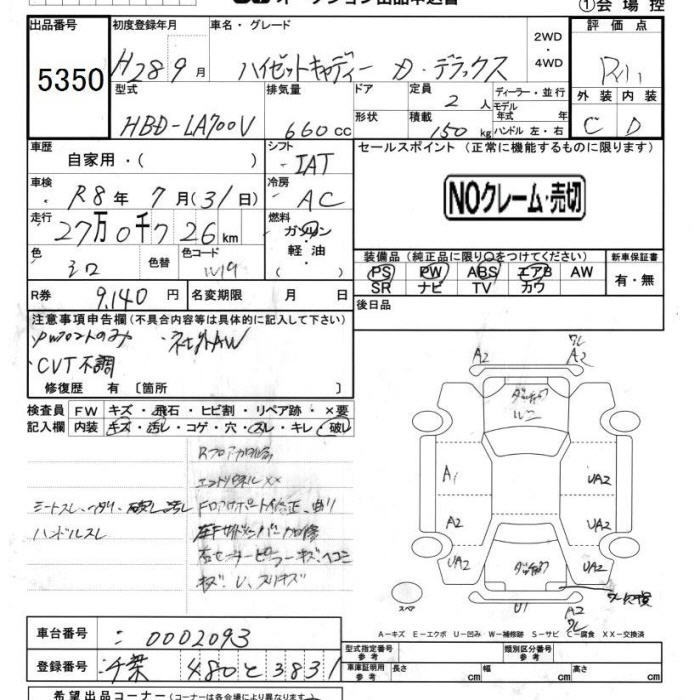 オークション出品申込書
①会場控
出品番号
5350
初度登録年月
H28 9月
車名・グレード
ハイゼットキャディー D・デラックス
2WD
・
4WD
評価点
外装 内装
C D
型式
HBD-LA700V
排気量
660cc
ドア
形状
定員
2人
積載
150kg
ディーラー・並行
モデル
年式 年
ハンドル 左・右
車歴
自家用・( )
シフト
IAT
セールスポイント(正常に機能するものに限ります)
NOクレーム・売切
車検
R8年7月(31日)
冷房
AC
走行
27万0千726km
燃料
ガソリン
・
軽油
( )
色
シロ
色替
色コード
W19
装備品(純正品に限り○をつけてください)
PS PW ABS エアB AW
SR ナビ TV カワ
新車保証書
有・無
R券
9,140円
名変期限 月 日
後日品
注意事項申告欄(不具合内容等は具体的に記入して下さい)
・PWフロントのみ ・社外AW
・CVT不調
修復歴 有 〔箇所 〕
検査員
記入欄
FW キズ・飛石・ヒビ割・リペア跡・×要
内装 キズ・汚レ・コゲ・穴・スレ・キレ・破レ
シートスレ、ヘタリ、破レ、汚レ
ハンドルスレ
コアサポート修正、曲り
A2 A2
A1
A2
UA2
UA2
UA2
UA2
U1
A2
スペア
A-キズ E-エクボ U-凹み W-補修跡 S-サビ C-腐食 XX-交換済
車台番号
0002093
登録番号
千葉 480 と 3831
型式指定番号
参考
類別区分番号
参考
車庫証明用
参考
長さ cm
幅 cm
高さ cm
希望出品コーナー(コーナーは各会場により異なります)